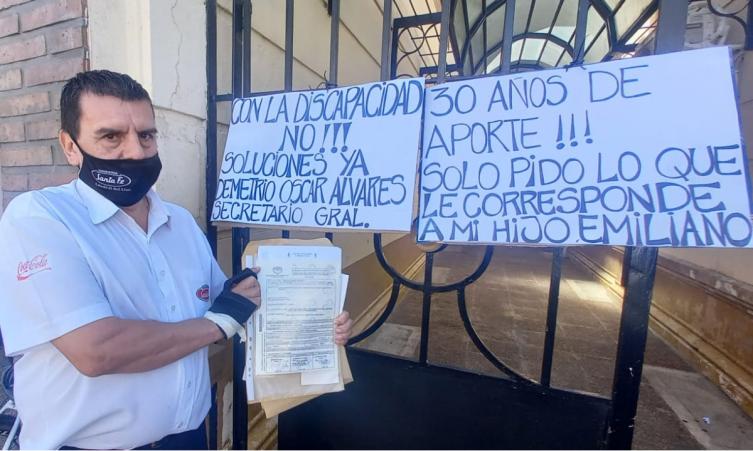 CON LA DISCAPACIDAD
NO!!!
SOLUCIONES YA
DEMETRIO OSCAR ALVARES
SECRETARIO GRAL.
30 AÑOS DE
APORTE!!!
SOLO PIDO LO QUE
LE CORRESPONDE
A MI HIJO EMILIANO
Santa Fe
Coca-Cola